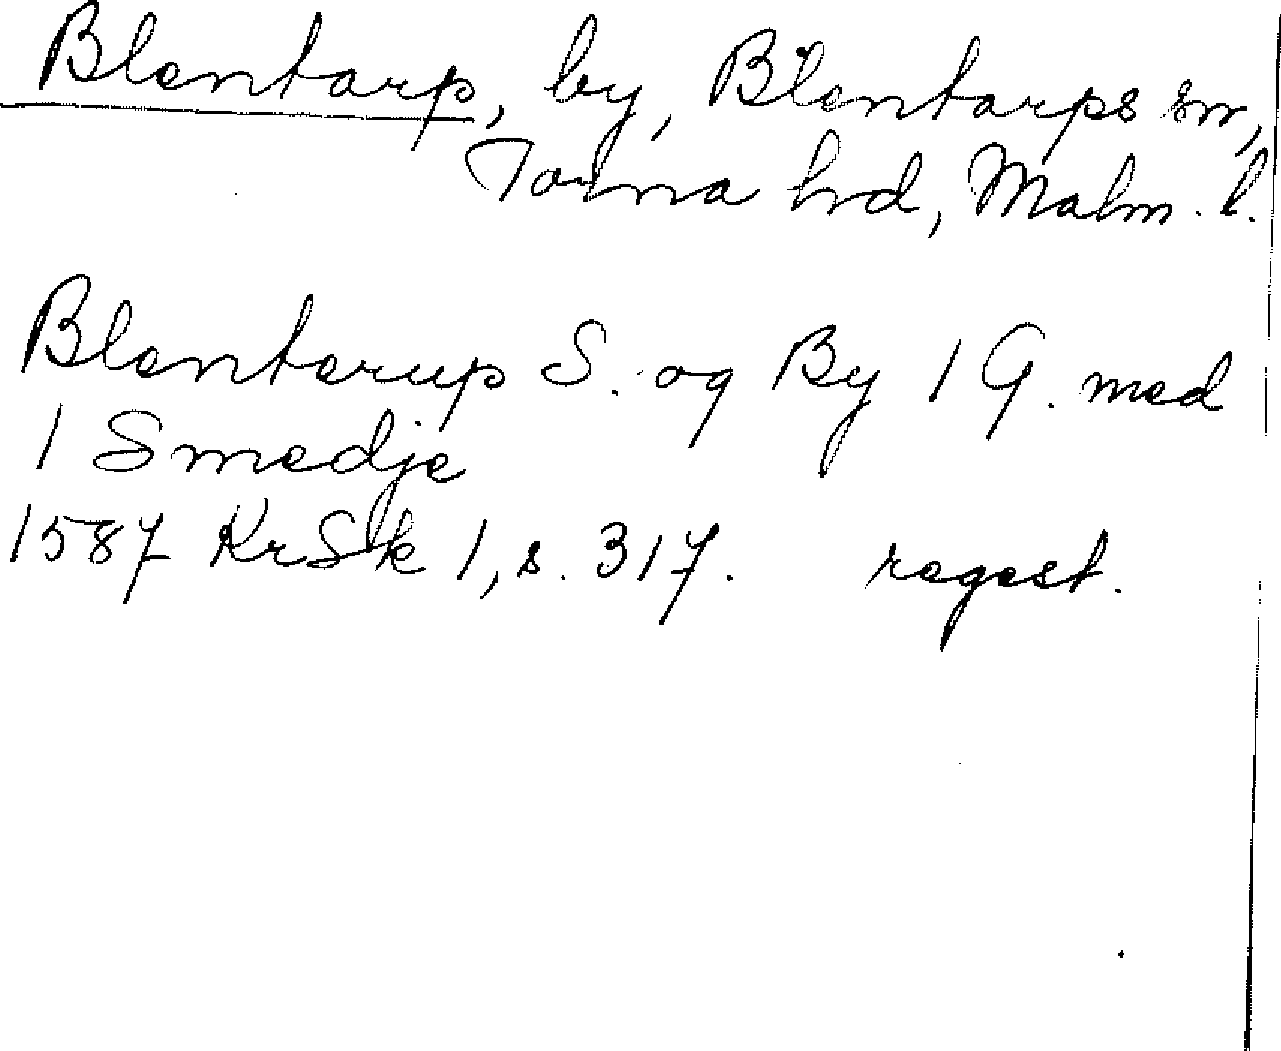 Blentarp, by, Blentarps sn,
Torna hrd, Malm. l.
Blenterup S. og By 1 G. med
1 Smedje
1587 KrSk 1, s. 317. regest.